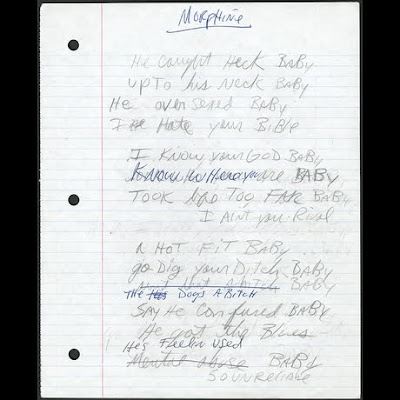 Morphine
He caught Heck BABy
up To his Neck BABy
He over sexed BABy
I Hate your BiBle
I Know your GOD BABy
Know who you are BABy
TOOK Too FAR BABy
I AINT your Rival
A HOT FIT BABy
go Dig your Ditch BABy
not that a bitch BABy
THE Dogs A Bitch
SAY He Confused BABy
He got The Blues
He's Feelin used
Mental abuse BABy
SO UNReliable